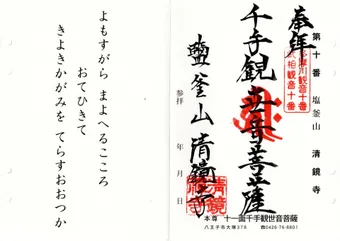 よもすがら まよへるこころ
おてひきて
きよきかがみを てらすおおつか
第十番 塩釜山 清鏡寺
奉拝
千手観世音菩薩
塩釜山 清鏡寺
参拝 年 月 日
観音十番
観音十番
清鏡寺
本尊 十一面千手観世音菩薩
八王子市大塚378 ☎0426-76-8801